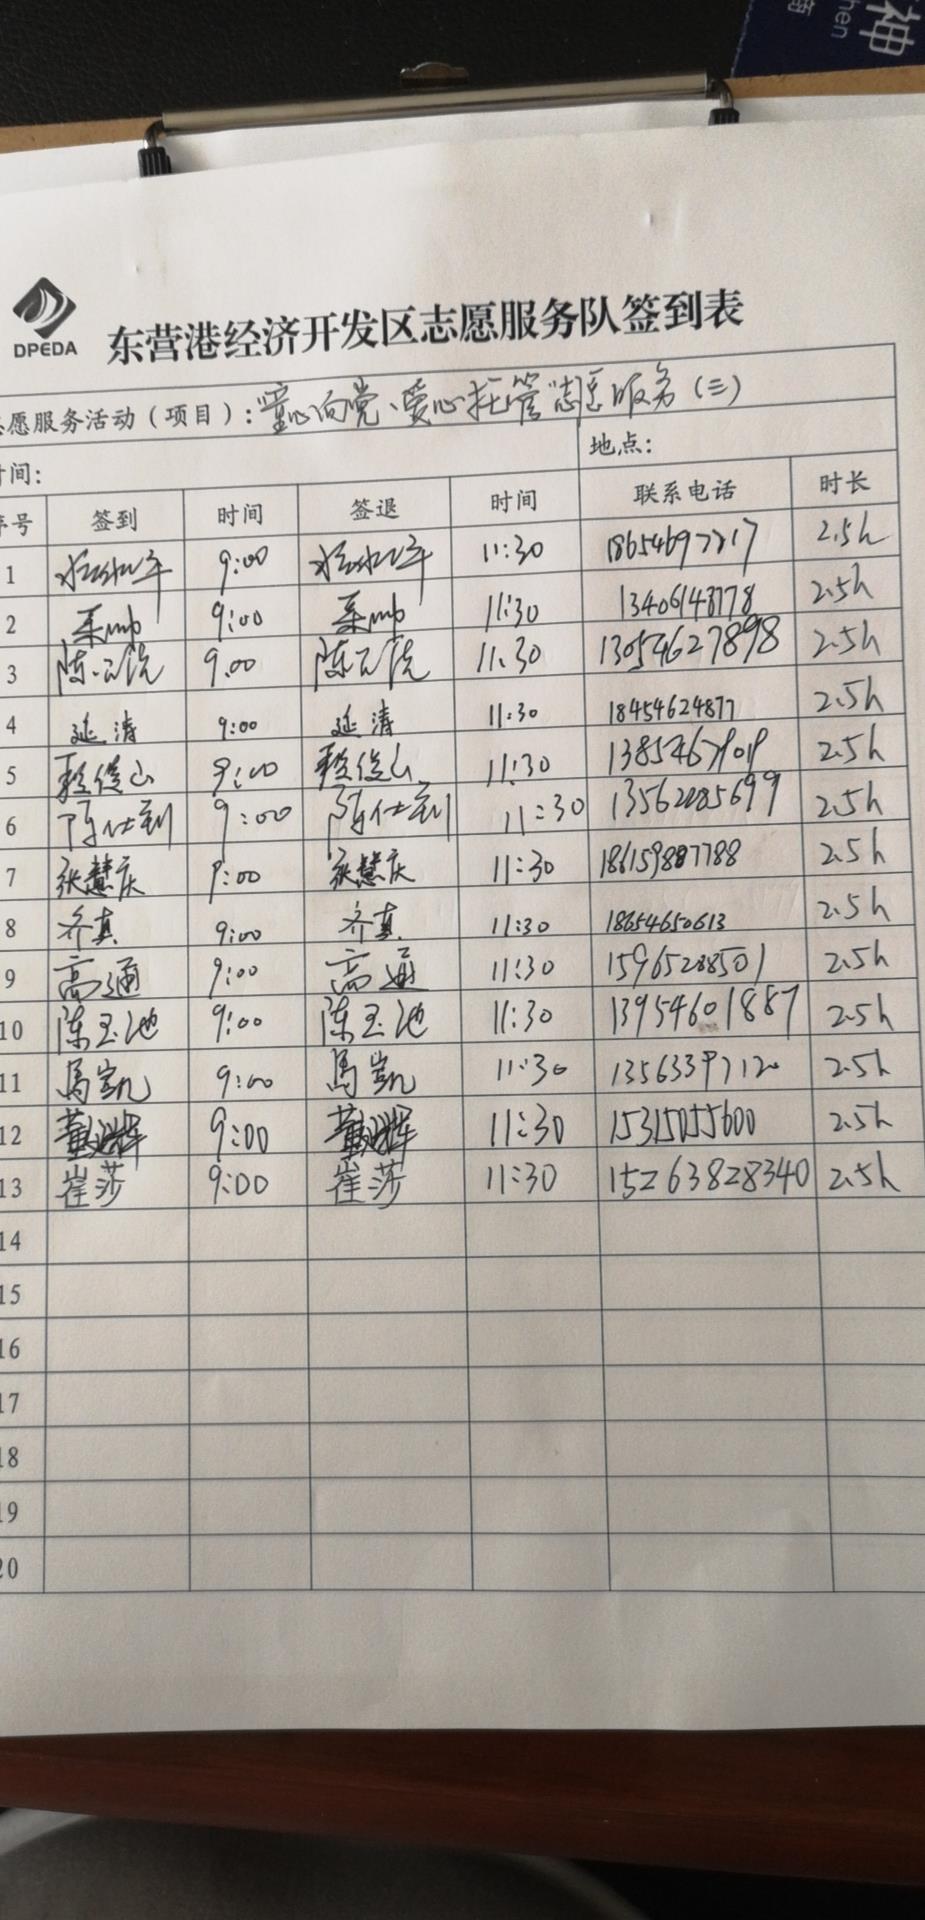 神
hen
商
DPEDA
东营港经济开发区志愿服务队签到表
愿服务活动（项目）："童心向党、爱心托管"志愿服务（三）
时间： 地点：
序号 签到 时间 签退 时间 联系电话 时长
1 9:00 11:30 18654697717 2.5h
2 9:00 11:30 13406148778 2.5h
3 9.00 11.30 13054627898 2.5h
4 延清 9:00 延清 11:30 18454624877 2.5h
5 9:00 11:30 2.5h
6 9:00 11:30 13562285699 2.5h
7 张慧庆 9:00 张慧庆 11:30 186159887788 2.5h
8 齐真 9:00 齐真 11:30 18654650613 2.5h
9 高通 9:00 高通 11:30 15965288501 2.5h
10 陈玉池 9:00 陈玉池 11:30 13954601887 2.5h
11 馬凯 9:00 馬凯 11:30 13563397120 2.5h
12 9:00 11:30 15315055600 2.5h
13 崔莎 9:00 崔莎 11:30 15263828340 2.5h
14
15
16
17
18
19
20